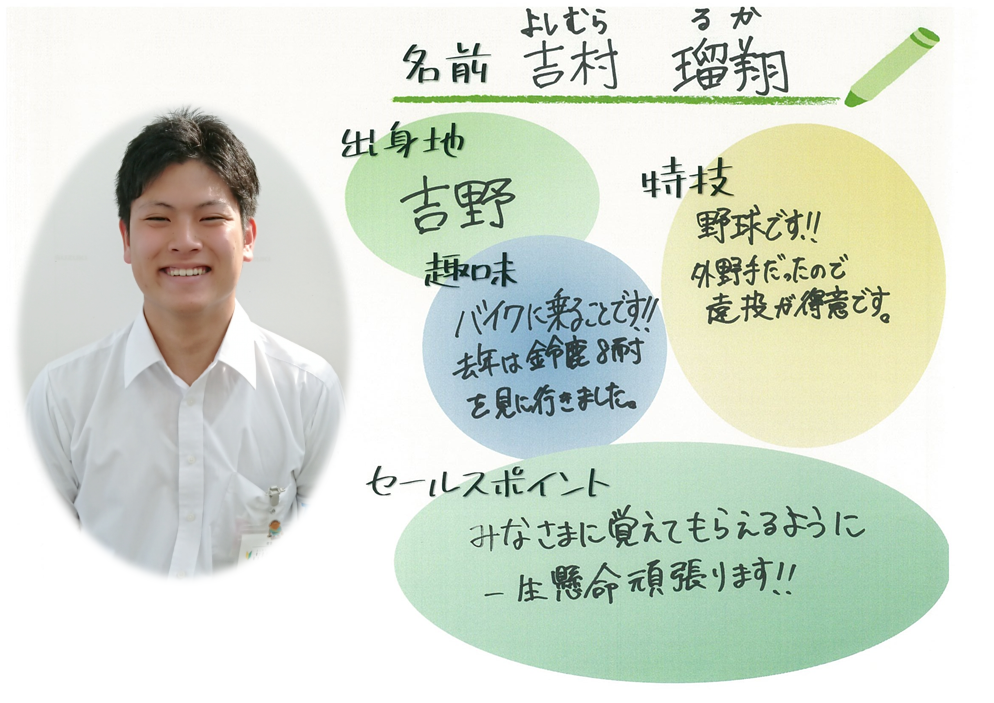 よしむら るか
名前 吉村 瑠翔
出身地
吉野
特技
野球です!!
外野手だったので
遠投が得意です。
趣味
バイクに乗ることです!!
去年は鈴鹿8耐
を見に行きました。
セールスポイント
みなさまに覚えてもらえるように
一生懸命頑張ります!!